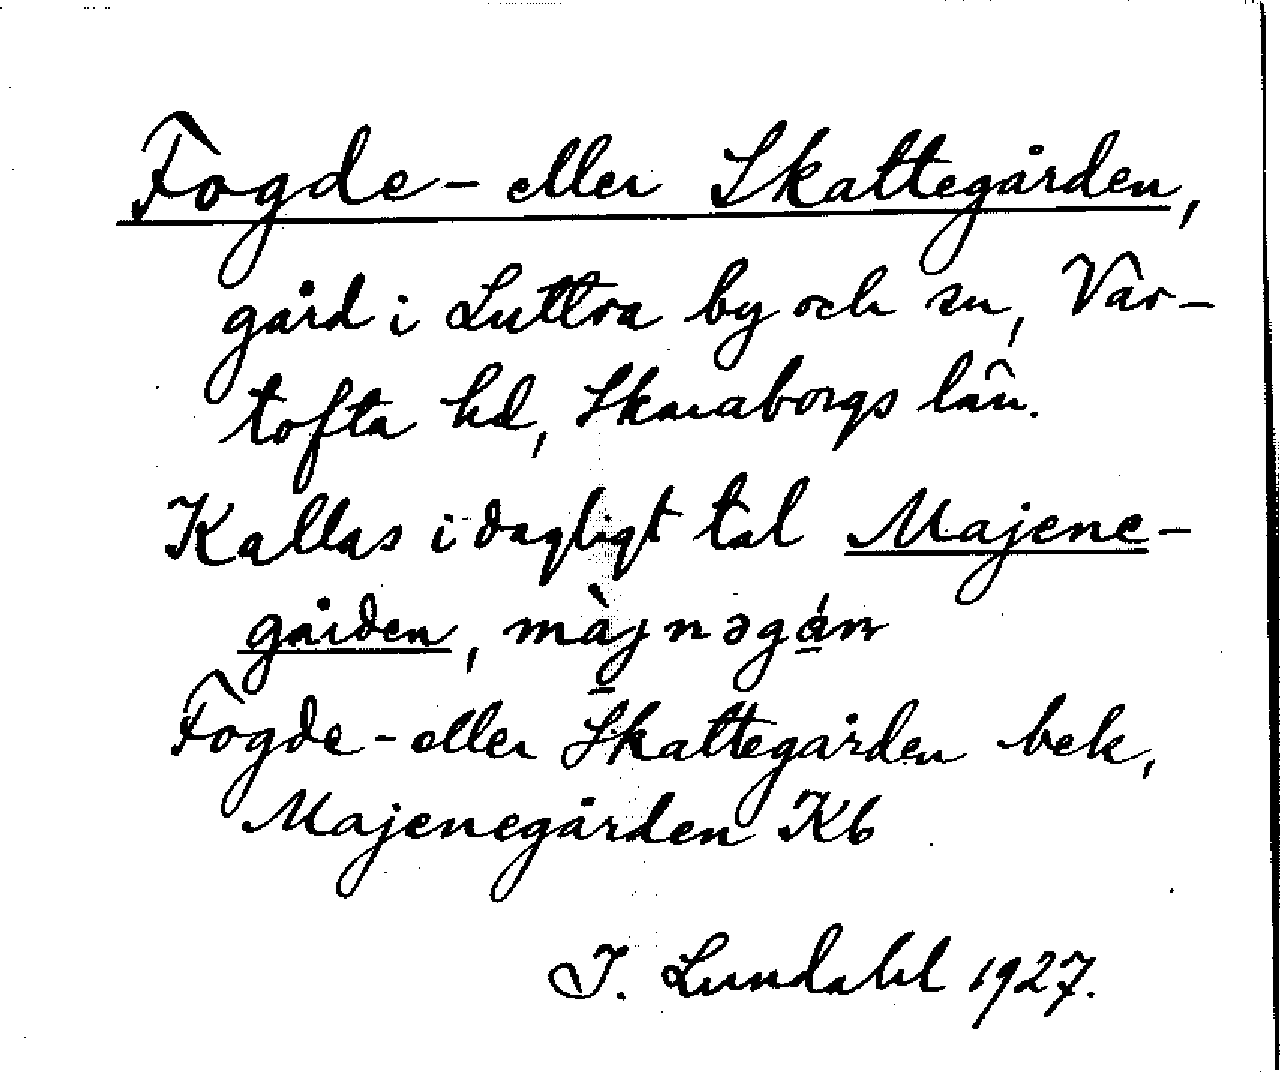 Fogde- eller Skattegården,
gård i Luttra by och sn, Var-
tofta hd, Skaraborgs län.
Kallas i dagligt tal Majene-
gården, màjnəgá̱n
Fogde- eller Skattegården bek,
Majenegården Kb
I. Lundahl 1927.